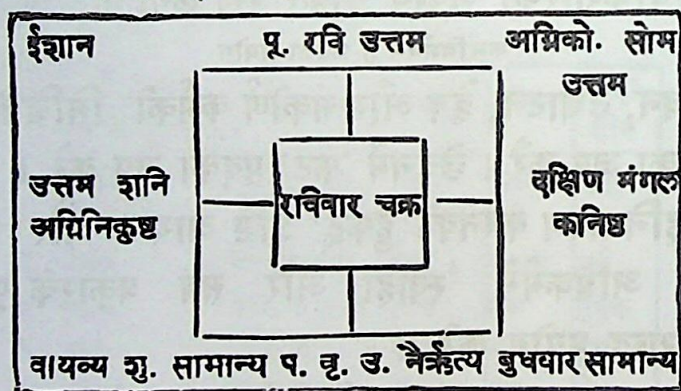 ईशान पू. रवि उत्तम अग्निको. सोम
उत्तम
उत्तम शनि
अग्निनिकुष्ट
रविवार चक्र
दक्षिण मंगल
कनिष्ठ
वायव्य शु. सामान्य प. वृ. उ. नैर्ऋत्य बुधवार सामान्य